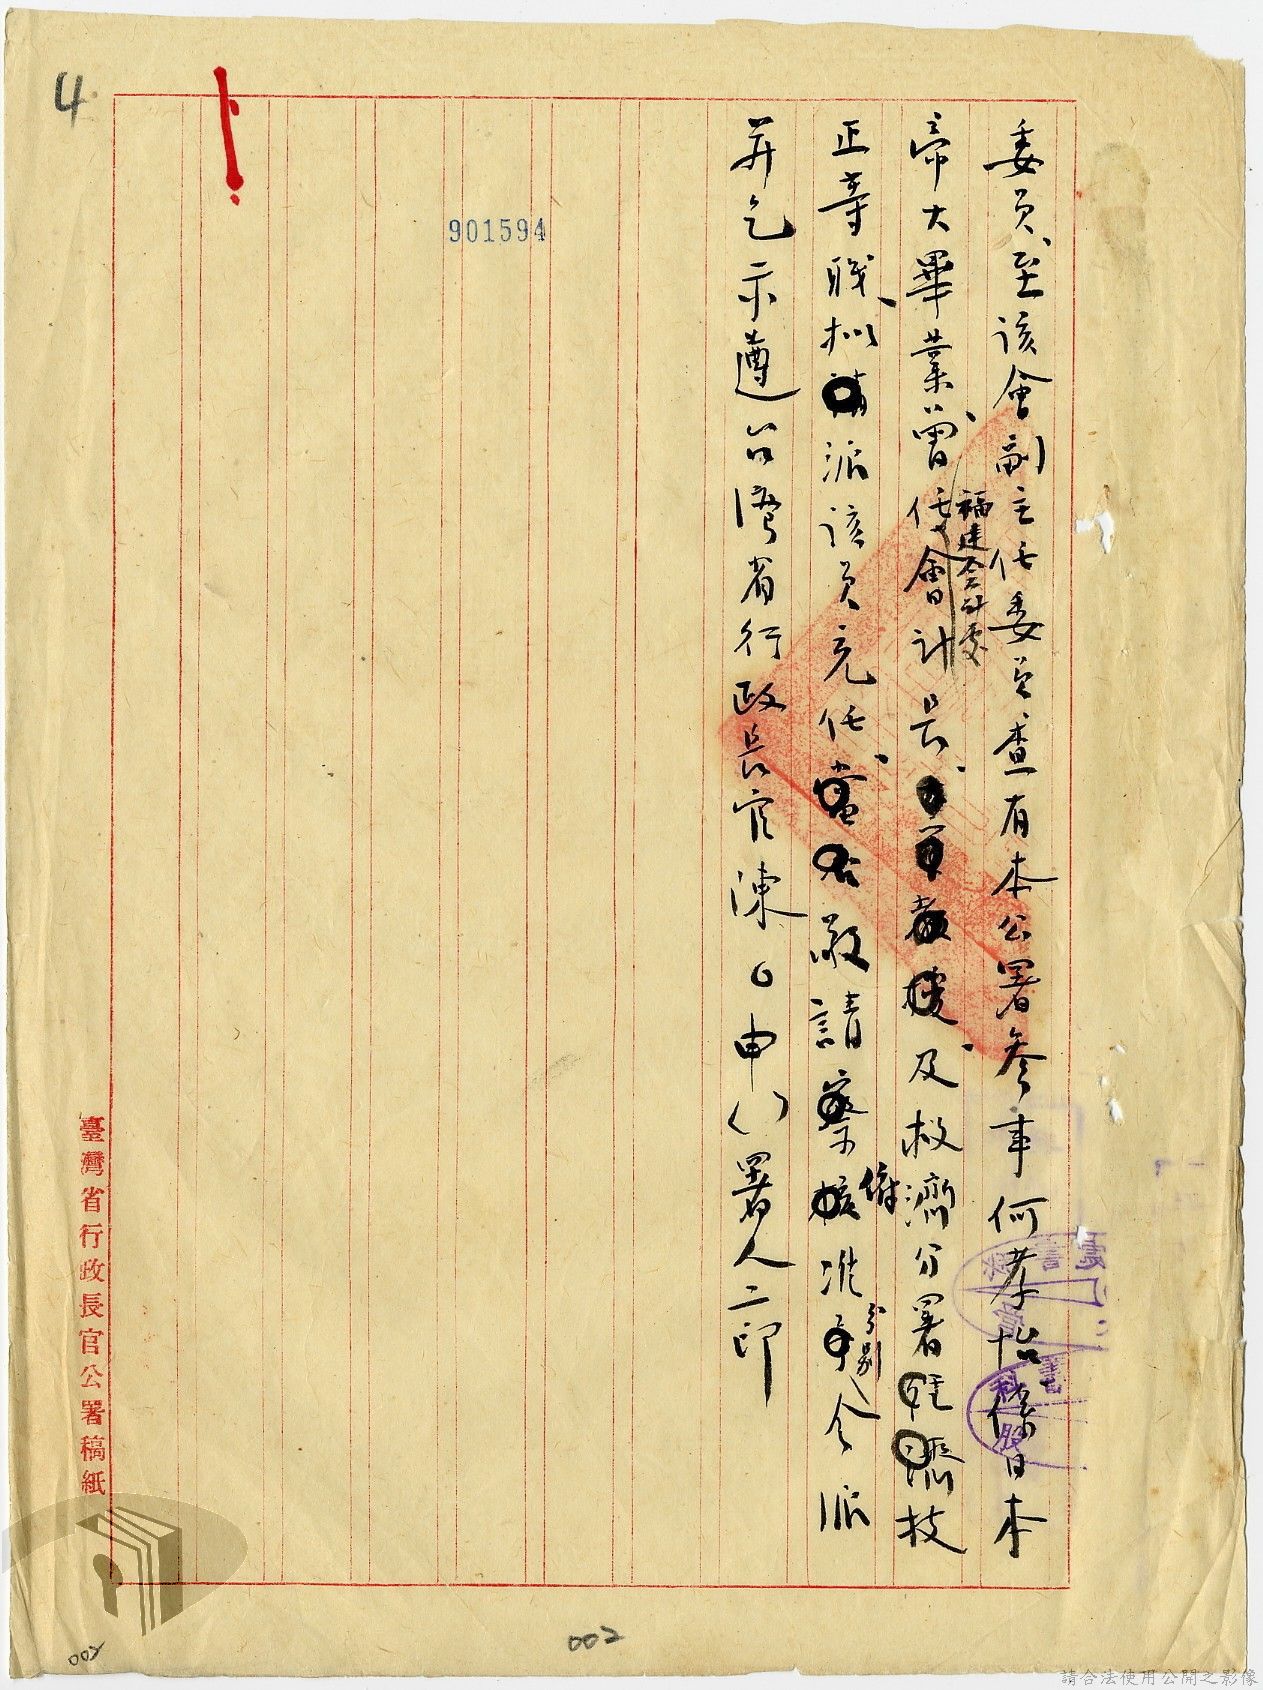 4
901594
委員、至該會副主任委員查有本公署參事何孝怡係日本
帝大畢業、曾任會計長、及救濟分署技
福建會計處
正等職、拟派該員充任、敬請察核准令派
俯
分別
并乞示遵台灣省行政長官陳〇申()署人二印
臺灣省行政長官公署稿紙
002
002
請合法使用公開之影像